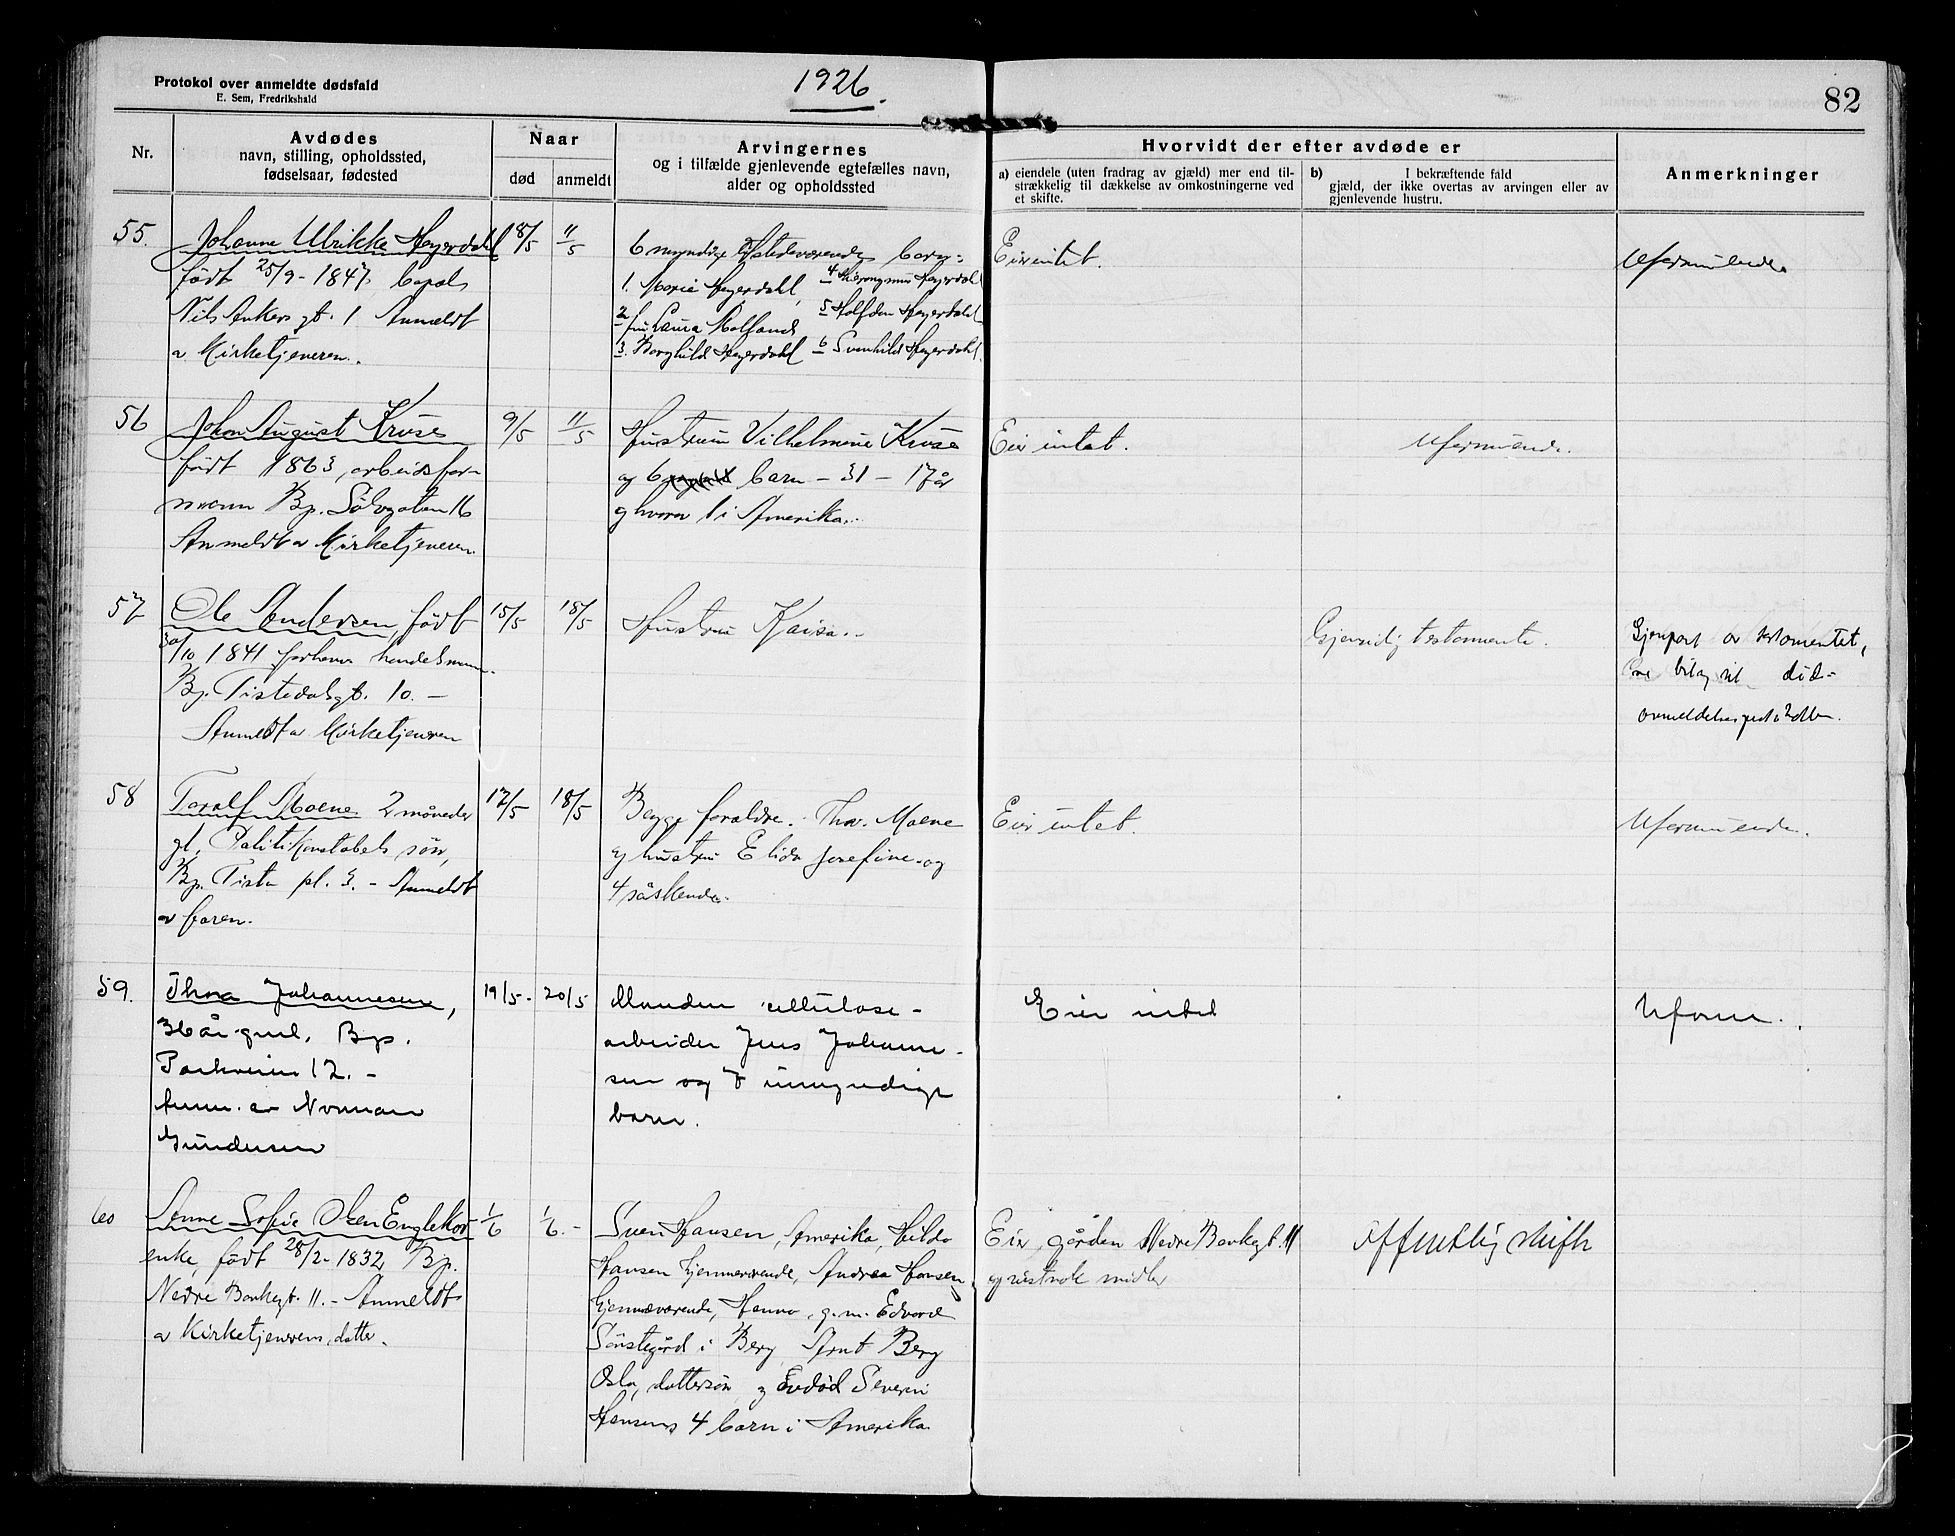 Protokol over anmeldte dødsfald
E. Sem, Fredrikshald
1926.
82
Nr.
Avdødes
navn, stilling, opholdssted,
fødselsaar, fødested
Naar
død
anmeldt
Arvingernes
og i tilfælde gjenlevende egtefælles navn,
alder og opholdssted
Hvorvidt der efter avdøde er
a) eiendele (uten fradrag av gjæld) mer end til-
strækkelig til dækkelse av omkostningerne ved
et skifte.
b) I bekræftende fald
gjæld, der ikke overtas av arvingen eller av
gjenlevende hustru.
Anmerkninger
55.
Johanne Ulrikke Heyerdahl
født 25/9-1847,
Nils Ankers gt. 1 Anmeldt
a Kirketjeneren.
8/5
11/5
6 myndige tilstedeværende barn:
1. Marie Heyerdahl,
2 fru Laura
3. Borghild Heyerdahl
4 Hieronymus Heyerdahl
5 Halfdan Heyerdahl
6 Svanhild Heyerdahl
Eier intet.
Uformuende
56
Johan August Kruse
født 1863, arbeidsfor-
mann Bp. Sølvgaten 16
Anmeldt a Kirketjeneren.
9/5
11/5
Hustruen Vilhelmine Kruse
og 6 barn - 31 - 17 år
hvorav 1 i Amerika.
Eier intet.
Uformuende.
57
Ole Andersen, født
30/10 1841 forhenv handelsmann
Bp. Tistedalsgt. 10. -
Anmeldt a Kirketjeneren
15/5
18/5
Hustru Kaisa.
Gjensidig testamente.
Gjenpart av testamentet,
bilag til døds-
anmeldelsesprotokollen.
58
Toralf Moene 2 måneder
gl, Politikonstabels søn,
Bp. Tista pl. 3. - Anmeldt
av faren.
17/5
18/5
Begge foreldre. Thv. Moene
og hustru Elida Josefine og
4 søskende.
Eier intet.
Uformuende.
59.
Thora Johannesen,
36 år gml. Bp.
Parkveien 12. -
Anm. av Norman
Gundersen
19/5 -
20/5
Manden cellulose-
arbeider Jens Johanne-
sen og 7 umyndige
barn.
Eier intet
Uform.
60
Anne Sofie Olsen Englekor
enke, født 28/2-1832, Bp.
Nedre Bankegt. 11. - Anmeldt
a Kirketjenerens datter.
1/6
1/6. -
Sven Hansen, Amerika, Hilda
Hansen hjemmeværende, Andrea Hansen
hjemmeværende, Hanna g. m. Edvard
Sønstegård i Berg Arnt Berg
Oslo, dattersøn og avdød Severin
Hansens 4 barn i Amerika
Eier gården Nedre Bankegt. 11
og midler
Offentlig skifte